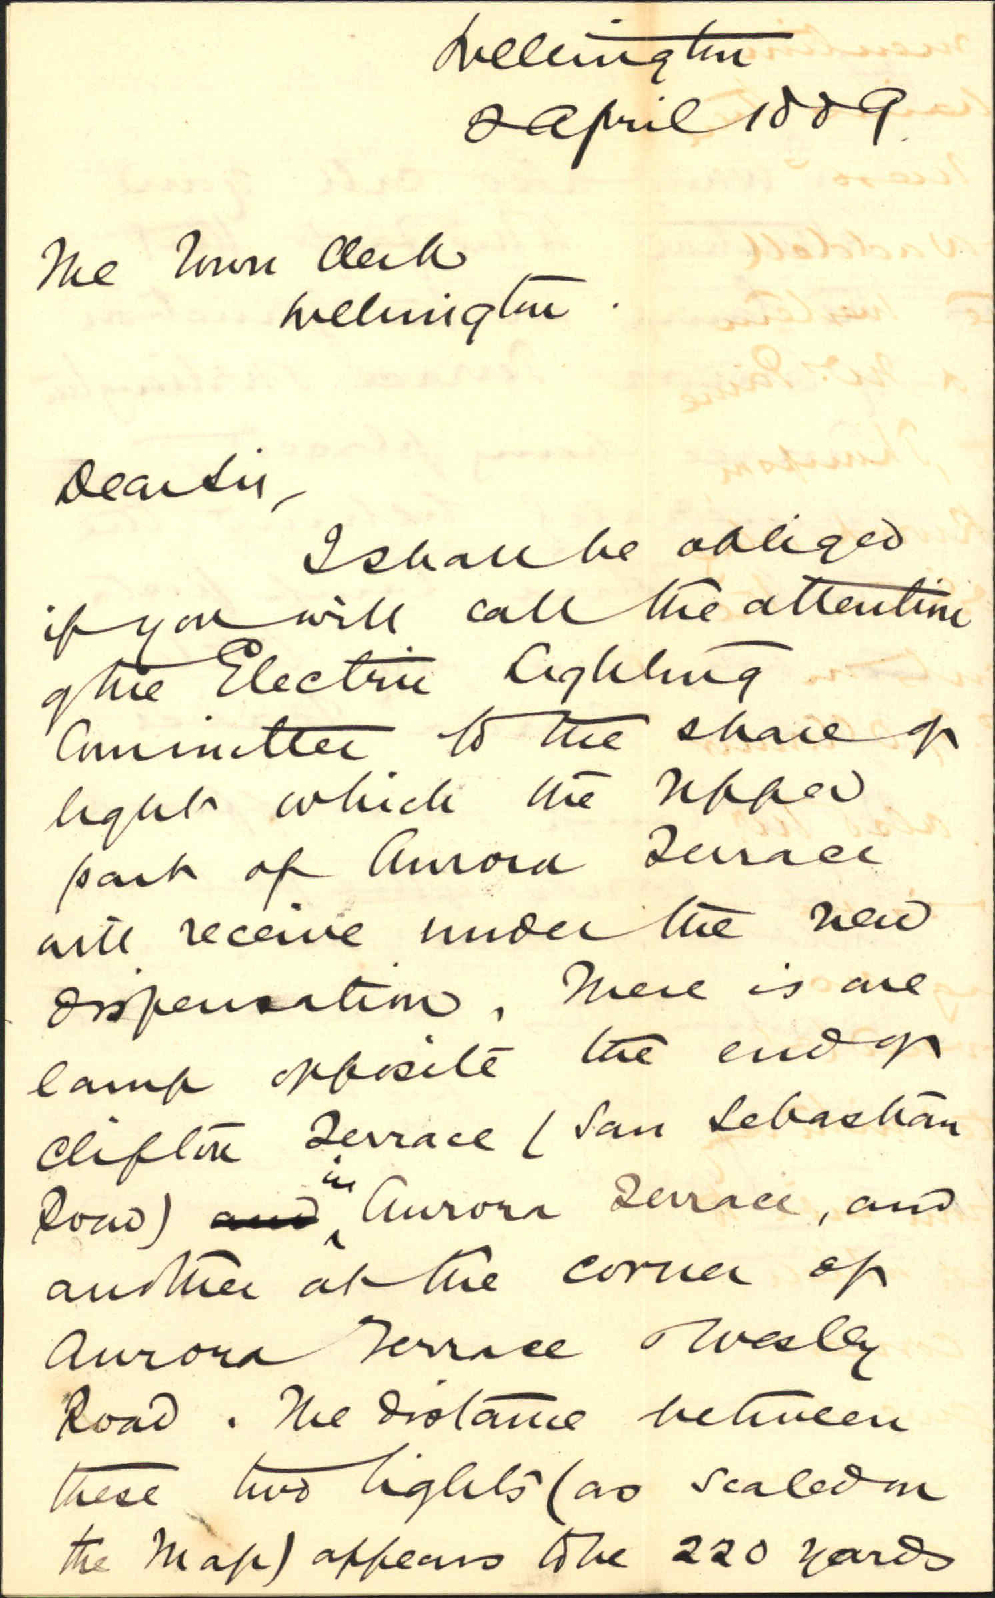 Wellington
2 April 1889.
The Town Clerk
Wellington.
Dear Sir,
I shall be obliged
if you will call the attention
of the Electric Lighting
Committee to the share of
light which the upper
part of Aurora Terrace
will receive under the new
dispensation. There is one
lamp opposite the end of
Clifton Terrace (San Sebastian
Road) and in Aurora Terrace, and
another at the corner of
Aurora Terrace & Wesley
Road. The distance between
these two lights (as scaled on
the Map) appears to be 220 yards